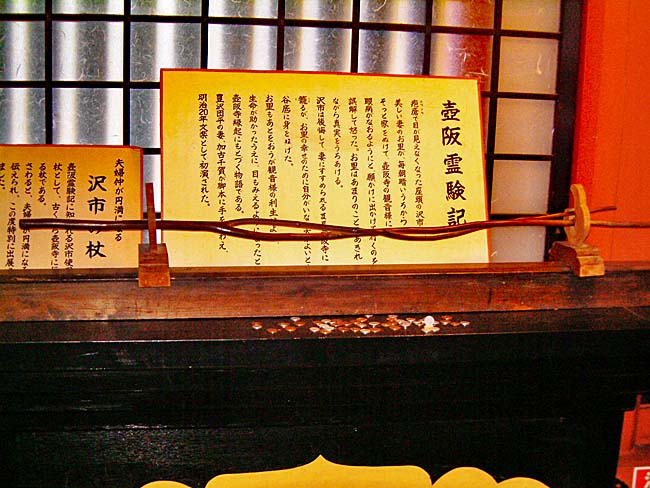 壺阪霊験記
疱瘡で目が見えなくなった座頭の沢市
美しい妻のお里が、毎朝暗いうちから
そっと家をぬけて、壺阪寺の観音様に
眼病がなおるようにと願かけに出かけて行くのを
誤解して怒った。お里はあまりのことに
ながら真実をうちあける。
沢市は後悔して、妻にすすめられるまま
籠るが、お里の幸せのため自分がいな
谷底に身をなげた。
お里もあとをおうが観音様の利生
生命が助かったうえに、目もみえるよ
壺阪寺縁起にもとづく物語である。
豊沢団平の妻・加古千賀が脚本に手を
明治20年文楽として初演された。
沢市の杖
夫婦仲が円満に
壺阪霊験記に知られる沢市
杖として、古くから壺阪寺に
る杖である。
さわると、夫婦
伝えられ、この度特別に出展
ました。